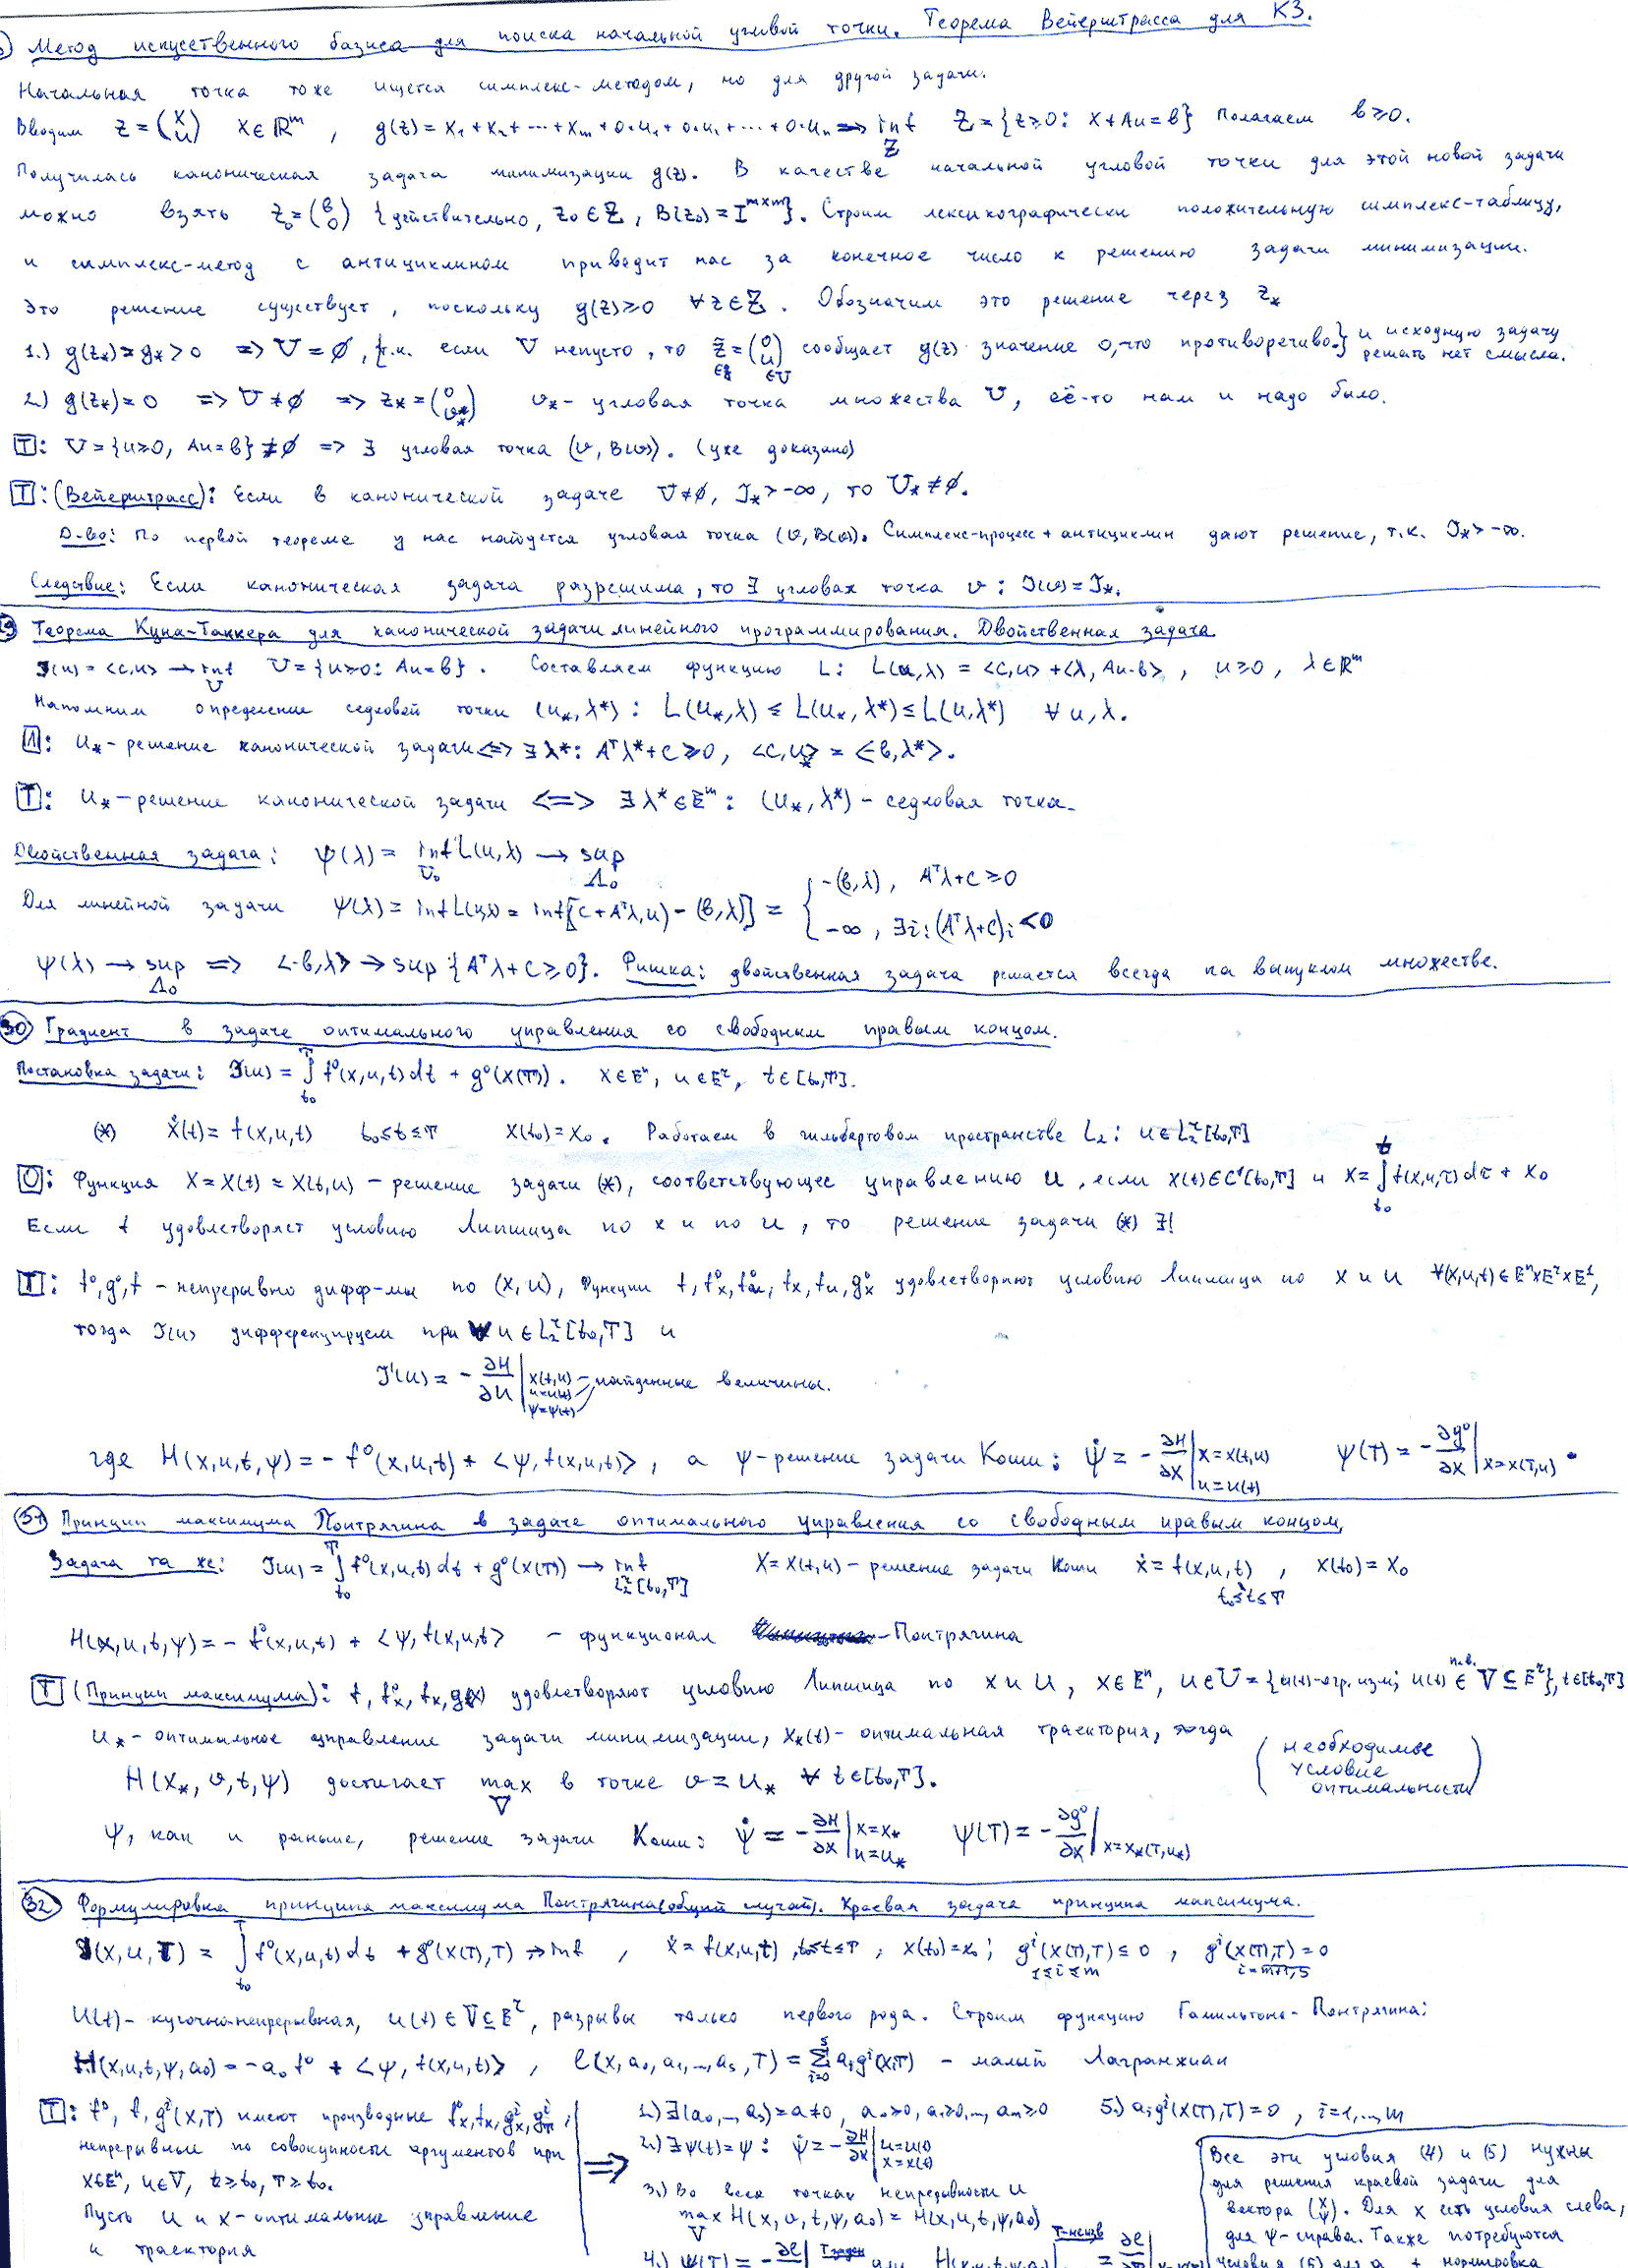 Метод искуственного базиса для поиска начальной угловой точки. Теорема Вейерштрасса для КЗ.
Начальная точка тоже ищется симплекс-методом, но для другой задачи.
Вводим z = (x u) x ∈ ℝᵐ , g(z) = x₁ + x₂ + ... + xₘ + 0·u₁ + 0·u₂ + ... + 0·uₙ → inf Z Z = {z ≥ 0: x + Au = b} Полагаем b ≥ 0.
Получилась каноническая задача минимизации g(z). В качестве начальной угловой точки для этой новой задачи
можно взять z₀ = (b 0) {действительно, z₀ ∈ Z, B(z₀) = I^{m×m}}. Строим лексикографически положительную симплекс-таблицу,
и симплекс-метод с антициклином приведит нас за конечное число к решению задачи минимизации.
Это решение существует, поскольку g(z) ≥ 0 ∀z ∈ Z. Обозначим это решение через z*
1.) g(z*) = g* > 0 => U = ∅, {т.к. если U непусто, то z̃ = (0 u) ∈Z ∈U сообщает g(z) значение 0, что противоречиво.} и исходную задачу решать нет смысла.
2.) g(z*) = 0 => U ≠ ∅ => z* = (0 v*) v* - угловая точка множества U, её-то нам и надо было.
T: U = {u ≥ 0, Au = b} ≠ ∅ => ∃ угловая точка (v, B(v)). (уже доказано)
T: (Вейерштрасс): Если в канонической задаче U ≠ ∅, J* > -∞, то U* ≠ ∅.
Д-во: По первой теореме у нас найдется угловая точка (v, B(v)). Симплекс-процесс + антициклин дают решение, т.к. J* > -∞.
Следствие: Если каноническая задача разрешима, то ∃ угловая точка v : J(v) = J*.
Теорема Куна-Таккера для канонической задачи линейного программирования. Двойственная задача
J(u) = <c,u> → inf U U = {u ≥ 0: Au = b}. Составляем функцию L: L(u,λ) = <c,u> + <λ, Au-b>, u ≥ 0, λ ∈ ℝᵐ
Напомним определение седловой точки (u*, λ*) : L(u*, λ) ≤ L(u*, λ*) ≤ L(u, λ*) ∀ u, λ.
Л: u* - решение канонической задачи <=> ∃ λ*: Aᵀλ* + c ≥ 0, <c,u*> = <-b, λ*>.
T: u* - решение канонической задачи <=> ∃ λ* ∈ Eᵐ: (u*, λ*) - седловая точка.
Двойственная задача: ψ(λ) = inf U₀ L(u,λ) → sup Λ₀
Для линейной задачи ψ(λ) = inf L(u,λ) = inf[(c + Aᵀλ, u) - (b,λ)] = { -(b,λ), Aᵀλ + c ≥ 0
-∞, ∃i: (Aᵀλ + c)ᵢ < 0
ψ(λ) → sup Λ₀ => <-b,λ> → sup {Aᵀλ + c ≥ 0}. Фишка: двойственная задача решается всегда на выпуклом множестве.
30 Градиент в задаче оптимального управления со свободным правым концом.
Постановка задачи: J(u) = ∫_{t₀}^{T} f⁰(x,u,t)dt + g⁰(x(T)). x ∈ Eⁿ, u ∈ Eʳ, t ∈ [t₀,T].
(*) ẋ(t) = f(x,u,t) t₀ ≤ t ≤ T x(t₀) = x₀. Работаем в гильбертовом пространстве L₂: u ∈ L₂ʳ[t₀,T]
О: Функция x = x(t) = x(t,u) - решение задачи (*), соответствующее управлению u, если x(t) ∈ C¹[t₀,T] и x = ∫_{t₀}^{t} f(x,u,τ)dτ + x₀
Если f удовлетворяет условию Липшица по x и по u, то решение задачи (*) ∃!
T: f⁰, g⁰, f - непрерывно дифф-мы по (x,u), Функции f, f⁰ₓ, f⁰ᵤ, fₓ, fᵤ, g⁰ₓ удовлетворяют условию Липшица по x и u ∀(x,u,t) ∈ Eⁿ×Eʳ×E¹,
тогда J(u) дифференцируем при ∀ u ∈ L₂ʳ[t₀,T] и
J'(u) = - ∂H/∂u | x(t,u) u=u(t) ψ=ψ(t) - найденные величины.
где H(x,u,t,ψ) = - f⁰(x,u,t) + <ψ, f(x,u,t)>, а ψ-решение задачи Коши: ψ̇ = - ∂H/∂x | x=x(t,u) u=u(t) ψ(T) = - ∂g⁰/∂x | x=x(T,u).
31 Принцип максимума Понтрягина в задаче оптимального управления со свободным правым концом.
Задача та же: J(u) = ∫_{t₀}^{T} f⁰(x,u,t)dt + g⁰(x(T)) → inf L₂ʳ[t₀,T] x = x(t,u) - решение задачи Коши ẋ = f(x,u,t), t₀≤t≤T x(t₀) = x₀
H(x,u,t,ψ) = - f⁰(x,u,t) + <ψ, f(x,u,t)> - функционал -Понтрягина
T (Принцип максимума): f, f⁰ₓ, fₓ, g(x) удовлетворяют условию Липшица по x и u, x ∈ Eⁿ, u ∈ U = {u(t)-огр. изм; u(t) п.в. ∈ V ⊆ Eʳ}, t ∈ [t₀,T]
u* - оптимальное управление задачи минимизации, x*(t) - оптимальная траектория, тогда
H(x*, v, t, ψ) достигает max V в точке v = u* ∀ t ∈ [t₀,T]. (необходимое условие оптимальности)
ψ, как и раньше, решение задачи Коши: ψ̇ = - ∂H/∂x | x=x* u=u* ψ(T) = - ∂g⁰/∂x | x=x*(T,u*)
32 Формулировка принципа максимума Понтрягина (общий случай). Краевая задача принципа максимума.
J(x,u,T) = ∫_{t₀}^{T} f⁰(x,u,t)dt + g⁰(x(T),T) → inf, ẋ = f(x,u,t), t₀≤t≤T, x(t₀) = x₀; gⁱ(x(T),T) ≤ 0 1≤i≤m, gⁱ(x(T),T) = 0 i=m+1,s
u(t) - кусочно-непрерывная, u(t) ∈ V ⊆ Eʳ, разрывы только первого рода. Строим функцию Гамильтона-Понтрягина:
H(x,u,t,ψ,a₀) = -a₀f⁰ + <ψ, f(x,u,t)>, l(x,a₀,a₁,...,aₛ,T) = Σ_{i=0}^{s} aᵢgⁱ(x,T) - малый Лагранжиан
T: f⁰, f, gⁱ(x,T) имеют производные f⁰ₓ, fₓ, gⁱₓ, gⁱ_T,
непрерывные по совокупности аргументов при
x∈Eⁿ, u∈V, t≥t₀, T≥t₀.
Пусть u и x - оптимальные управление
и траектория
=>
1.) ∃(a₀,...,aₛ) = a ≠ 0, a₀≥0, a₁≥0,..., aₘ≥0 5.) aᵢgⁱ(x(T),T) = 0, i=1,...,m
2.) ∃ψ(t) = ψ : ψ̇ = - ∂H/∂x | u=u(t) x=x(t)
3.) Во всех точках непрерывности u
max V H(x,v,t,ψ,a₀) = H(x,u,t,ψ,a₀)
Все эти условия (4) и (5) нужны
для решения краевой задачи для
вектора (x ψ). Для x есть условия слева,
для ψ-справа. Также потребуются